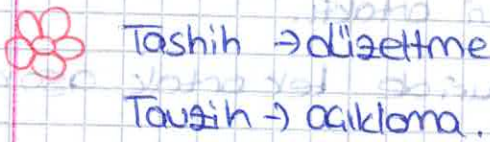 Tashih → düzeltme
Tavzih → açıklama.